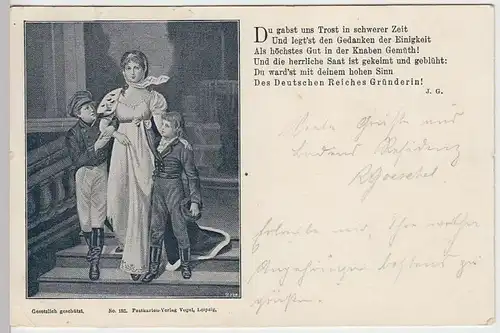 Du gabst uns Trost in schwerer Zeit
Und legt'st den Gedanken der Einigkeit
Als höchstes Gut in der Knaben Gemüth!
Und die herrliche Saat ist gekeimt und geblüht:
Du ward'st mit deinem hohen Sinn
Des Deutschen Reiches Gründerin!
J. G.
Grüße aus
Badens Residenz
Erlaube mir, Ihre werthen
Angehörigen bestens zu
grüßen.
Gesetzlich geschützt. No. 182. Postkarten-Verlag Vogel, Leipzig.